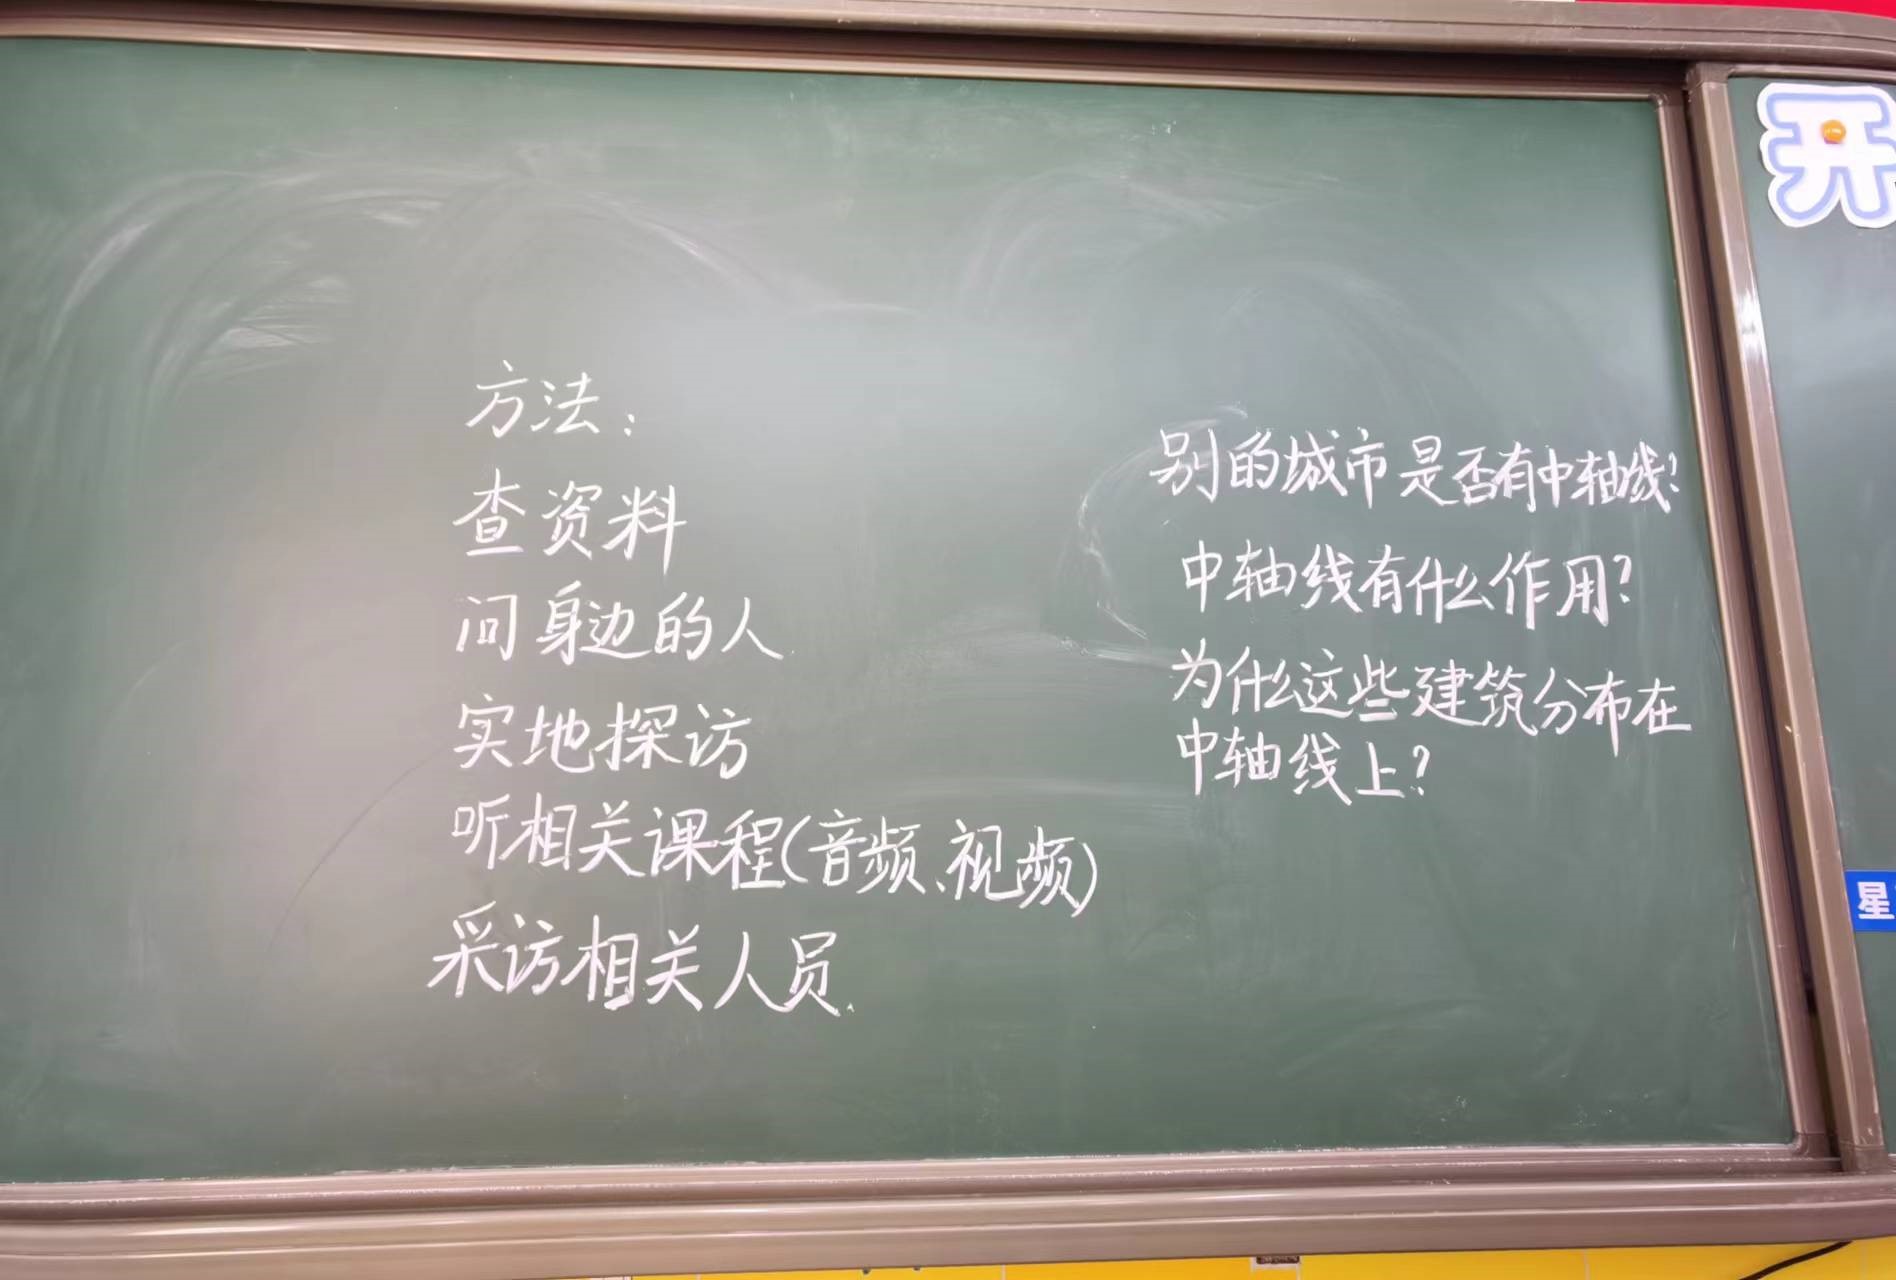 方法：
查资料
问身边的人
实地探访
听相关课程(音频、视频)
采访相关人员.
别的城市是否有中轴线?
中轴线有什么作用?
为什么这些建筑分布在
中轴线上?
开
星